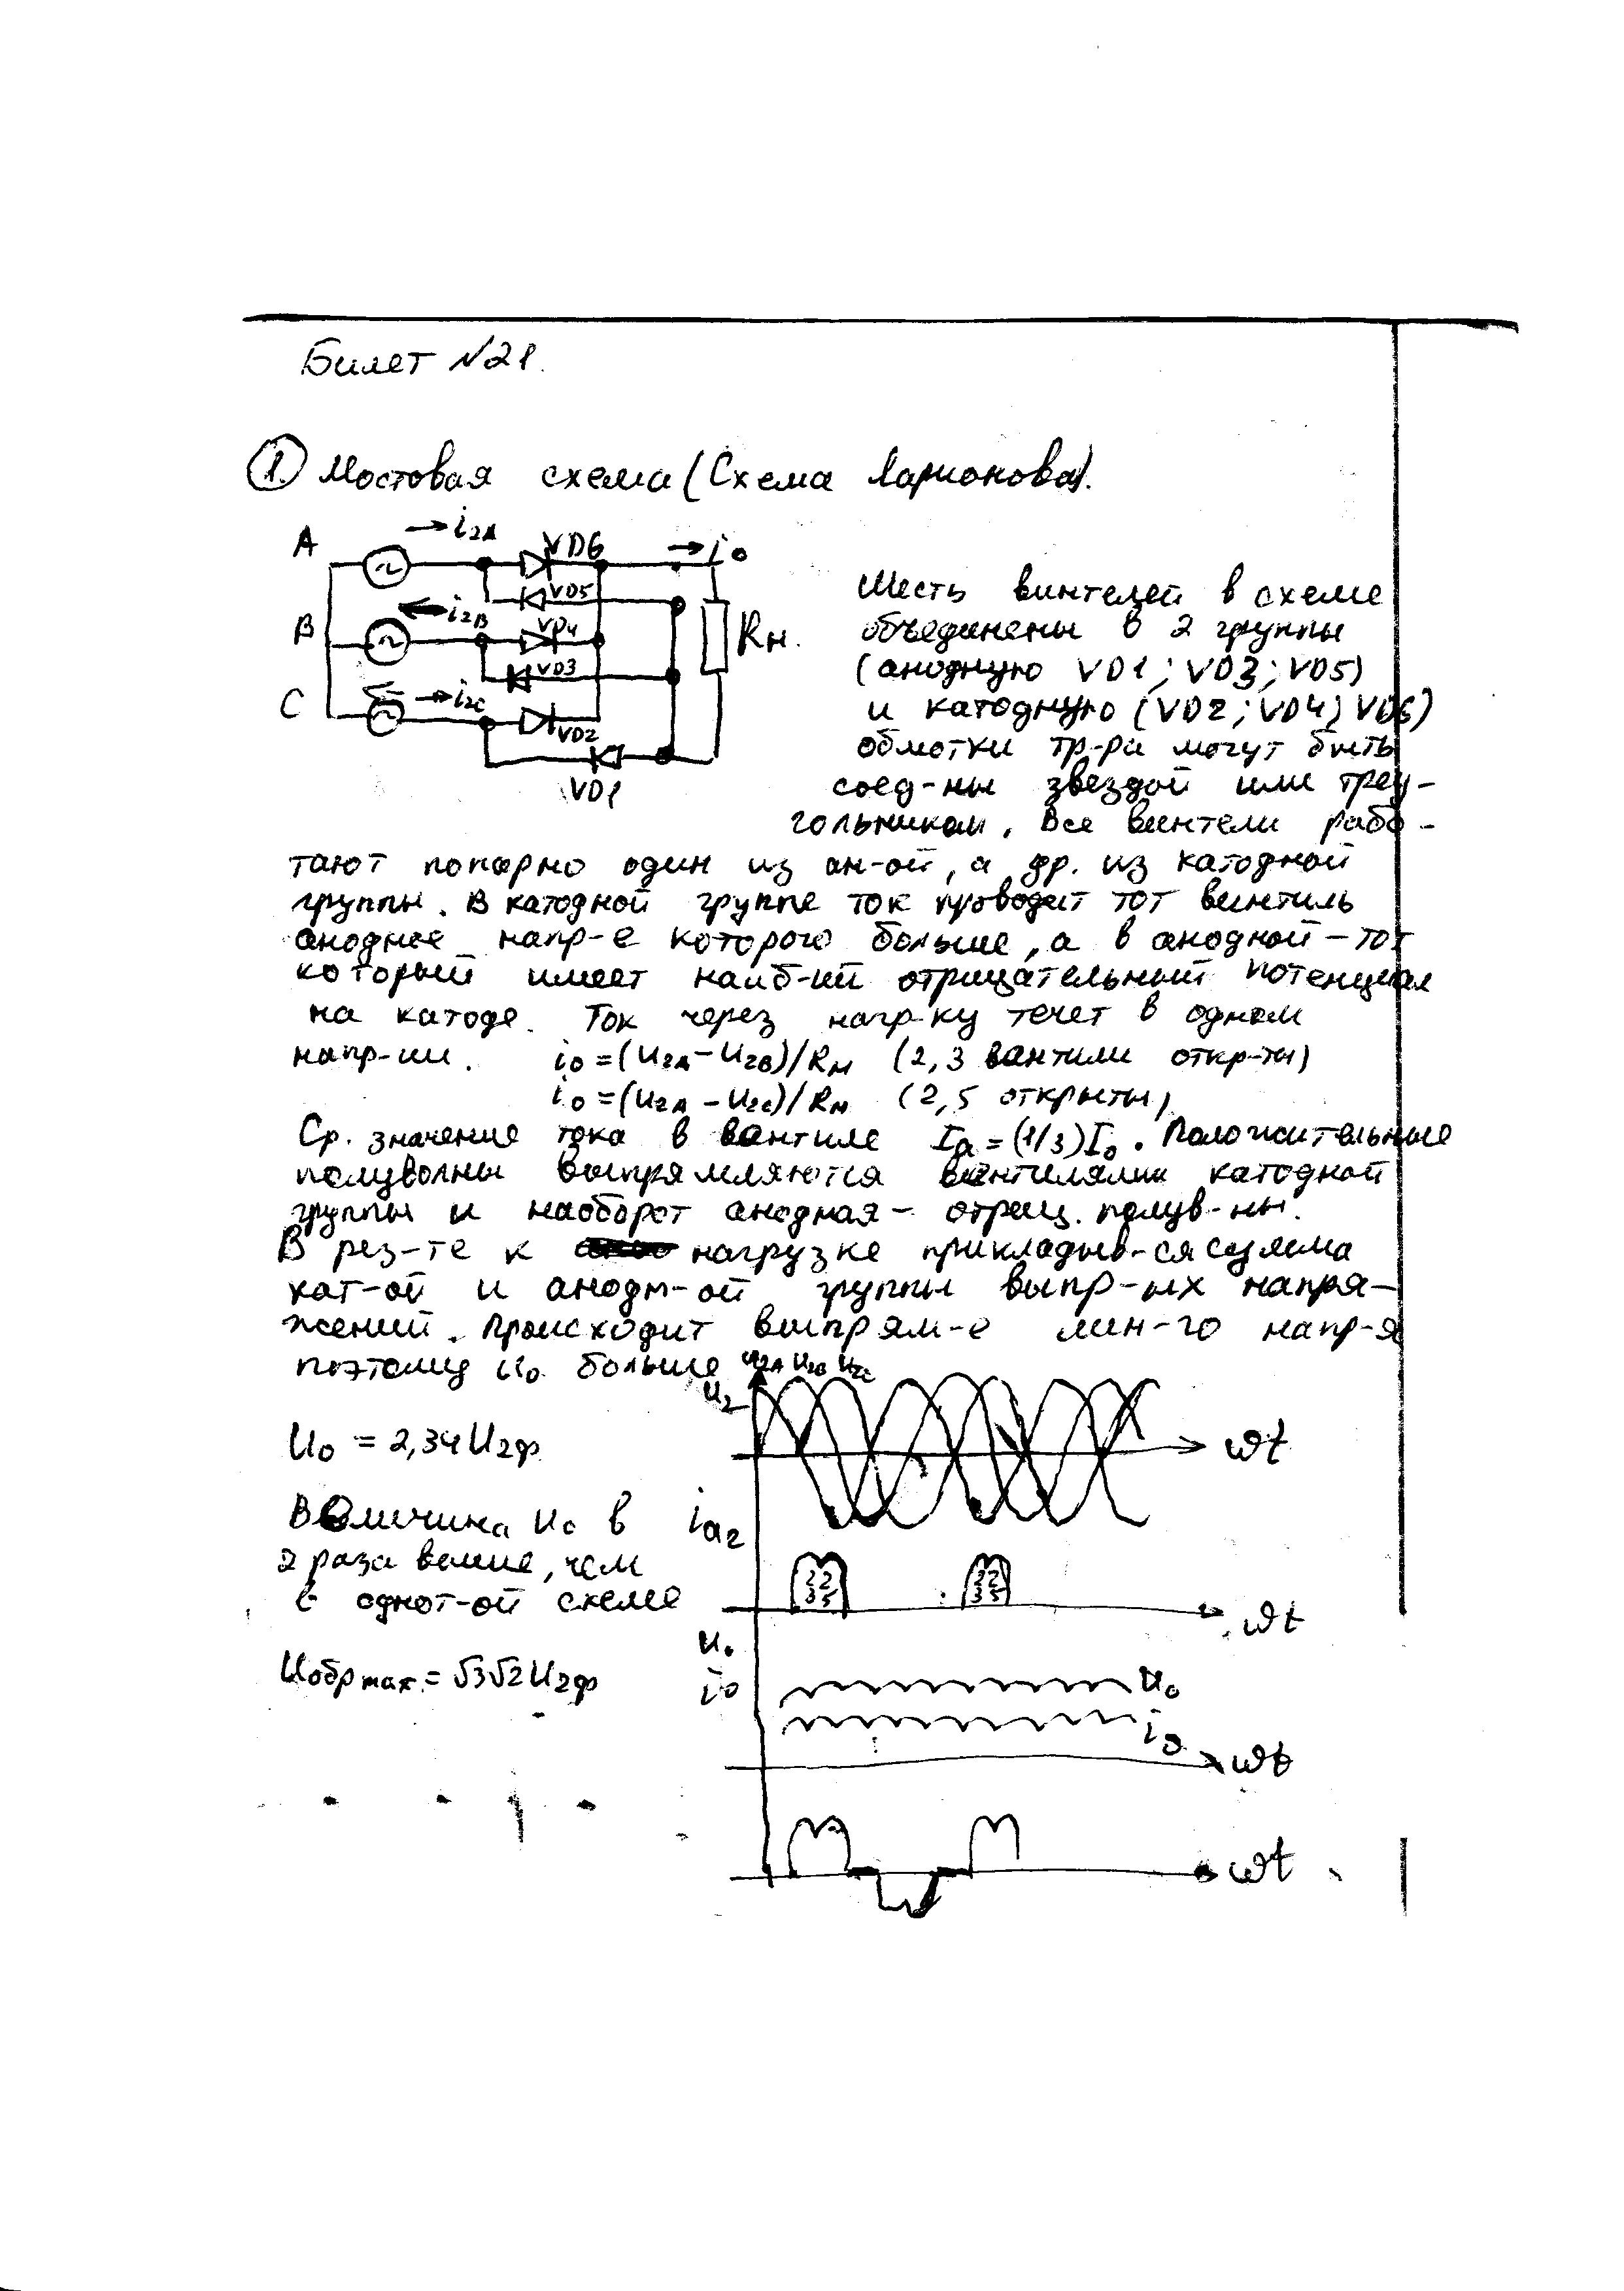 Билет №21.
① Мостовая схема (Схема Ларионова).
A → i2A VD6 → i0
VD5
B i2B VD4 Rн.
VD3
C → i2C VD2
VD1
Шесть винтелей в схеме
объединены в 2 группы
(анодную VD1; VD3; VD5)
и катодную (VD2; VD4; VD6)
обмотки тр-ра могут быть
соед-ны звездой или треу-
гольником. Все винтели рабо-
тают попарно один из ан-ой, а др. из катодной
группы. В катодной группе ток проводит тот винтиль
анодное напр-е которого больше, а в анодной – тот
который имеет наиб-ий отрицательный потенциал
на катоде. Ток через нагр-ку течет в одном
напр-ии. i0 = (U2A – U2B)/Rн (2,3 вантили откр-ты)
i0 = (U2A – U2C)/Rн (2,5 открыты)
Ср. значение тока в вантиле Ia = (1/3)I0. Положительные
полуволны выпрямляются вентилями катодной
группы и наоборот анодная – отриц. полув-ны.
В рез-те к нагрузке прикладыв-ся сумма
кат-ой и анодн-ой группы выпр-ых напря-
жений. Происходит выпрям-е лин-го напр-я
поэтому U0 больше
U2A U2B U2C
U2
ωt
U0 = 2,34U2ф
Величина U0 в
2 раза выше, чем
в однот-ой схеме
ia2
22 35 22 35
ωt
Uобр max = √3√2U2ф
U0
i0
U0
i0
ωt
ωt